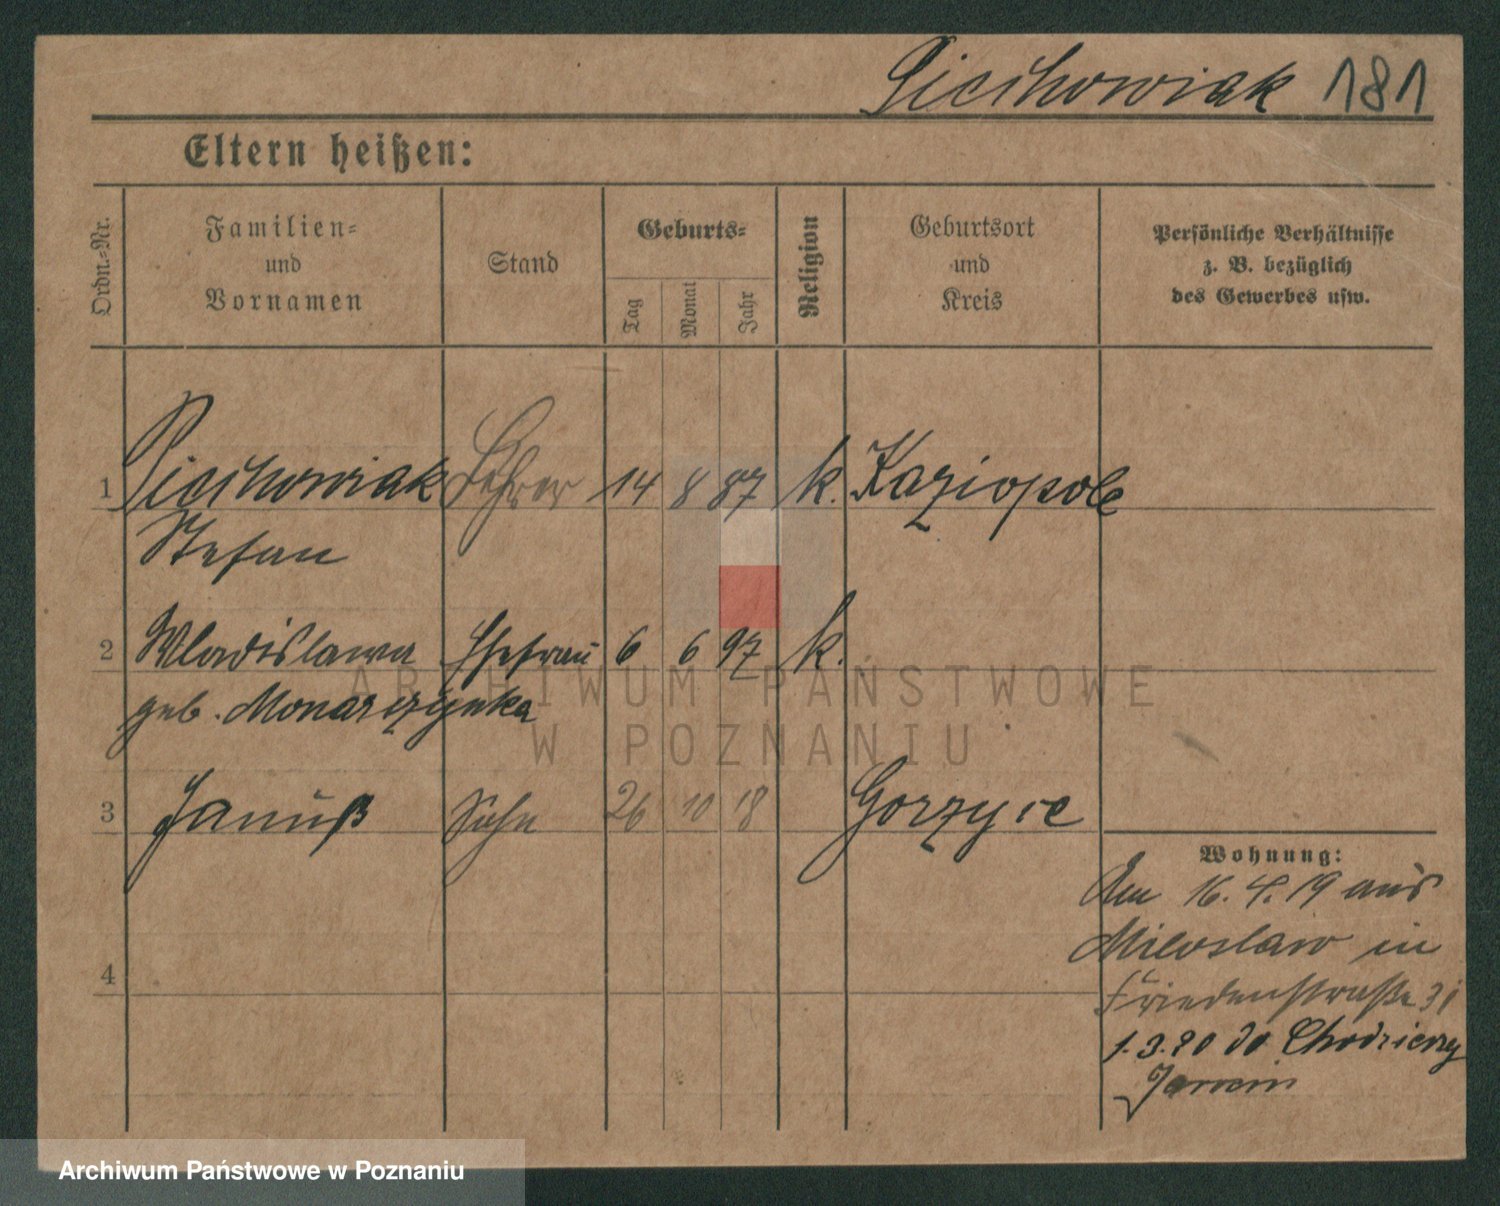 Piechowiak 181
Eltern heißen:
Ordn.-Nr.
Familien-
und
Vornamen
Stand
Geburts-
Tag
Monat
Jahr
Religion
Geburtsort
und
Kreis
Persönliche Verhältnisse
z. B. bezüglich
des Gewerbes usw.
1 Piechowiak Lehrer 14 8 87 k. Kaziopole
Stefan
2 Wladislawa Ehefrau 6 6 97 k.
geb.
3 Januß Sohn 26 10 18 Gorzyce
Wohnung:
Am 16.4.19 aus
Miloslaw in
Friedenstraße 31
4
1.3.20 do
Jarocin
ARCHIWUM PAŃSTWOWE
W POZNANIU
Archiwum Państwowe w Poznaniu